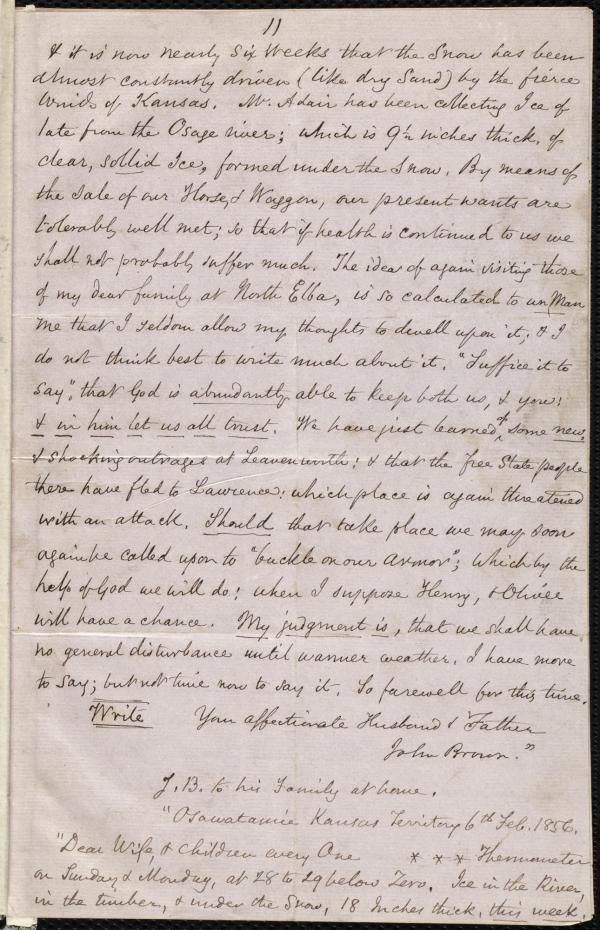 11
& it is now nearly Six Weeks that the Snow has been
almost constantly driven (like dry Sand) by the fierce
Winds of Kansas. Mr. Adair has been collecting Ice of
late from the Osage river; which is 9½ inches thick, of
clear, sollid Ice, formed under the Snow. By means of
the sale of our Horse, & Waggon, our present wants are
tolerably well met; so that if health is continued to us we
shall not probably suffer much. The idea of again visiting those
of my dear family at North Elba, is so calculated to unman
me that I seldom allow my thoughts to dwell upon it, & I
do not think best to write much about it. "Suffice it to
say", that God is abundantly able to keep both us, & you:
& in him let us all trust. We have just learned of some new,
& shocking outrages at Leavenworth: & that the free State people
there have fled to Lawrence: which place is again threatened
with an attack. Should that take place we may soon
again be called upon to "buckle on our Armor"; which by the
help of God we will do: when I suppose Henry, & Oliver
will have a chance. My judgment is, that we shall have
no general disturbance until warmer weather. I have more
to say; but not time now to say it. So farewell for this time.
Write Your affectionate Husband & Father
John Brown."
J. B. to his Family at home.
"Osawatamie Kansas Territory 6th Feb. 1856.
"Dear Wife, & Children every One * * * Thermometer
on Sunday & Monday, at 28 to 29 below Zero. Ice in the River,
in the timber, & under the Snow, 18 Inches thick, this week.